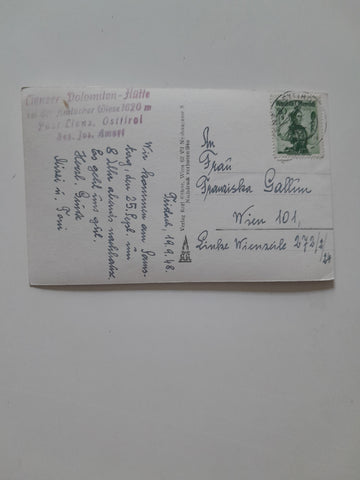 Lienzer-Dolomiten-Hütte
in der Amlacher Wiese 1620 m
Post Lienz, Osttirol
Bes. Jos. Amort
Tirstal, 19.9.48.
Wir kommen am Sams-
tag den 25. Sept. um
8 Uhr abends
Es geht uns gut.
Herzl. Grüße
u. Toni
Verlag
Wien
Nachdruck verboten
An
Frau
Franziska Gallun
Wien 101,
Linke Wienzeile 272/2
/24